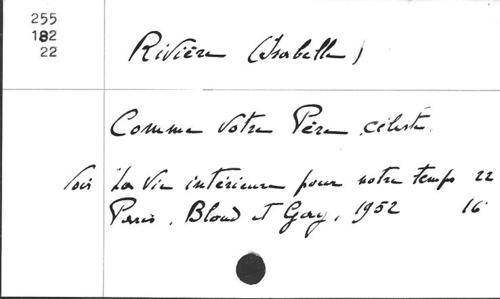 255
182
22
Rivière (Isabelle)
Comme Votre Père céleste.
Voir La Vie intérieure pour notre temps 22
Paris, Bloud et Gay, 1952 16